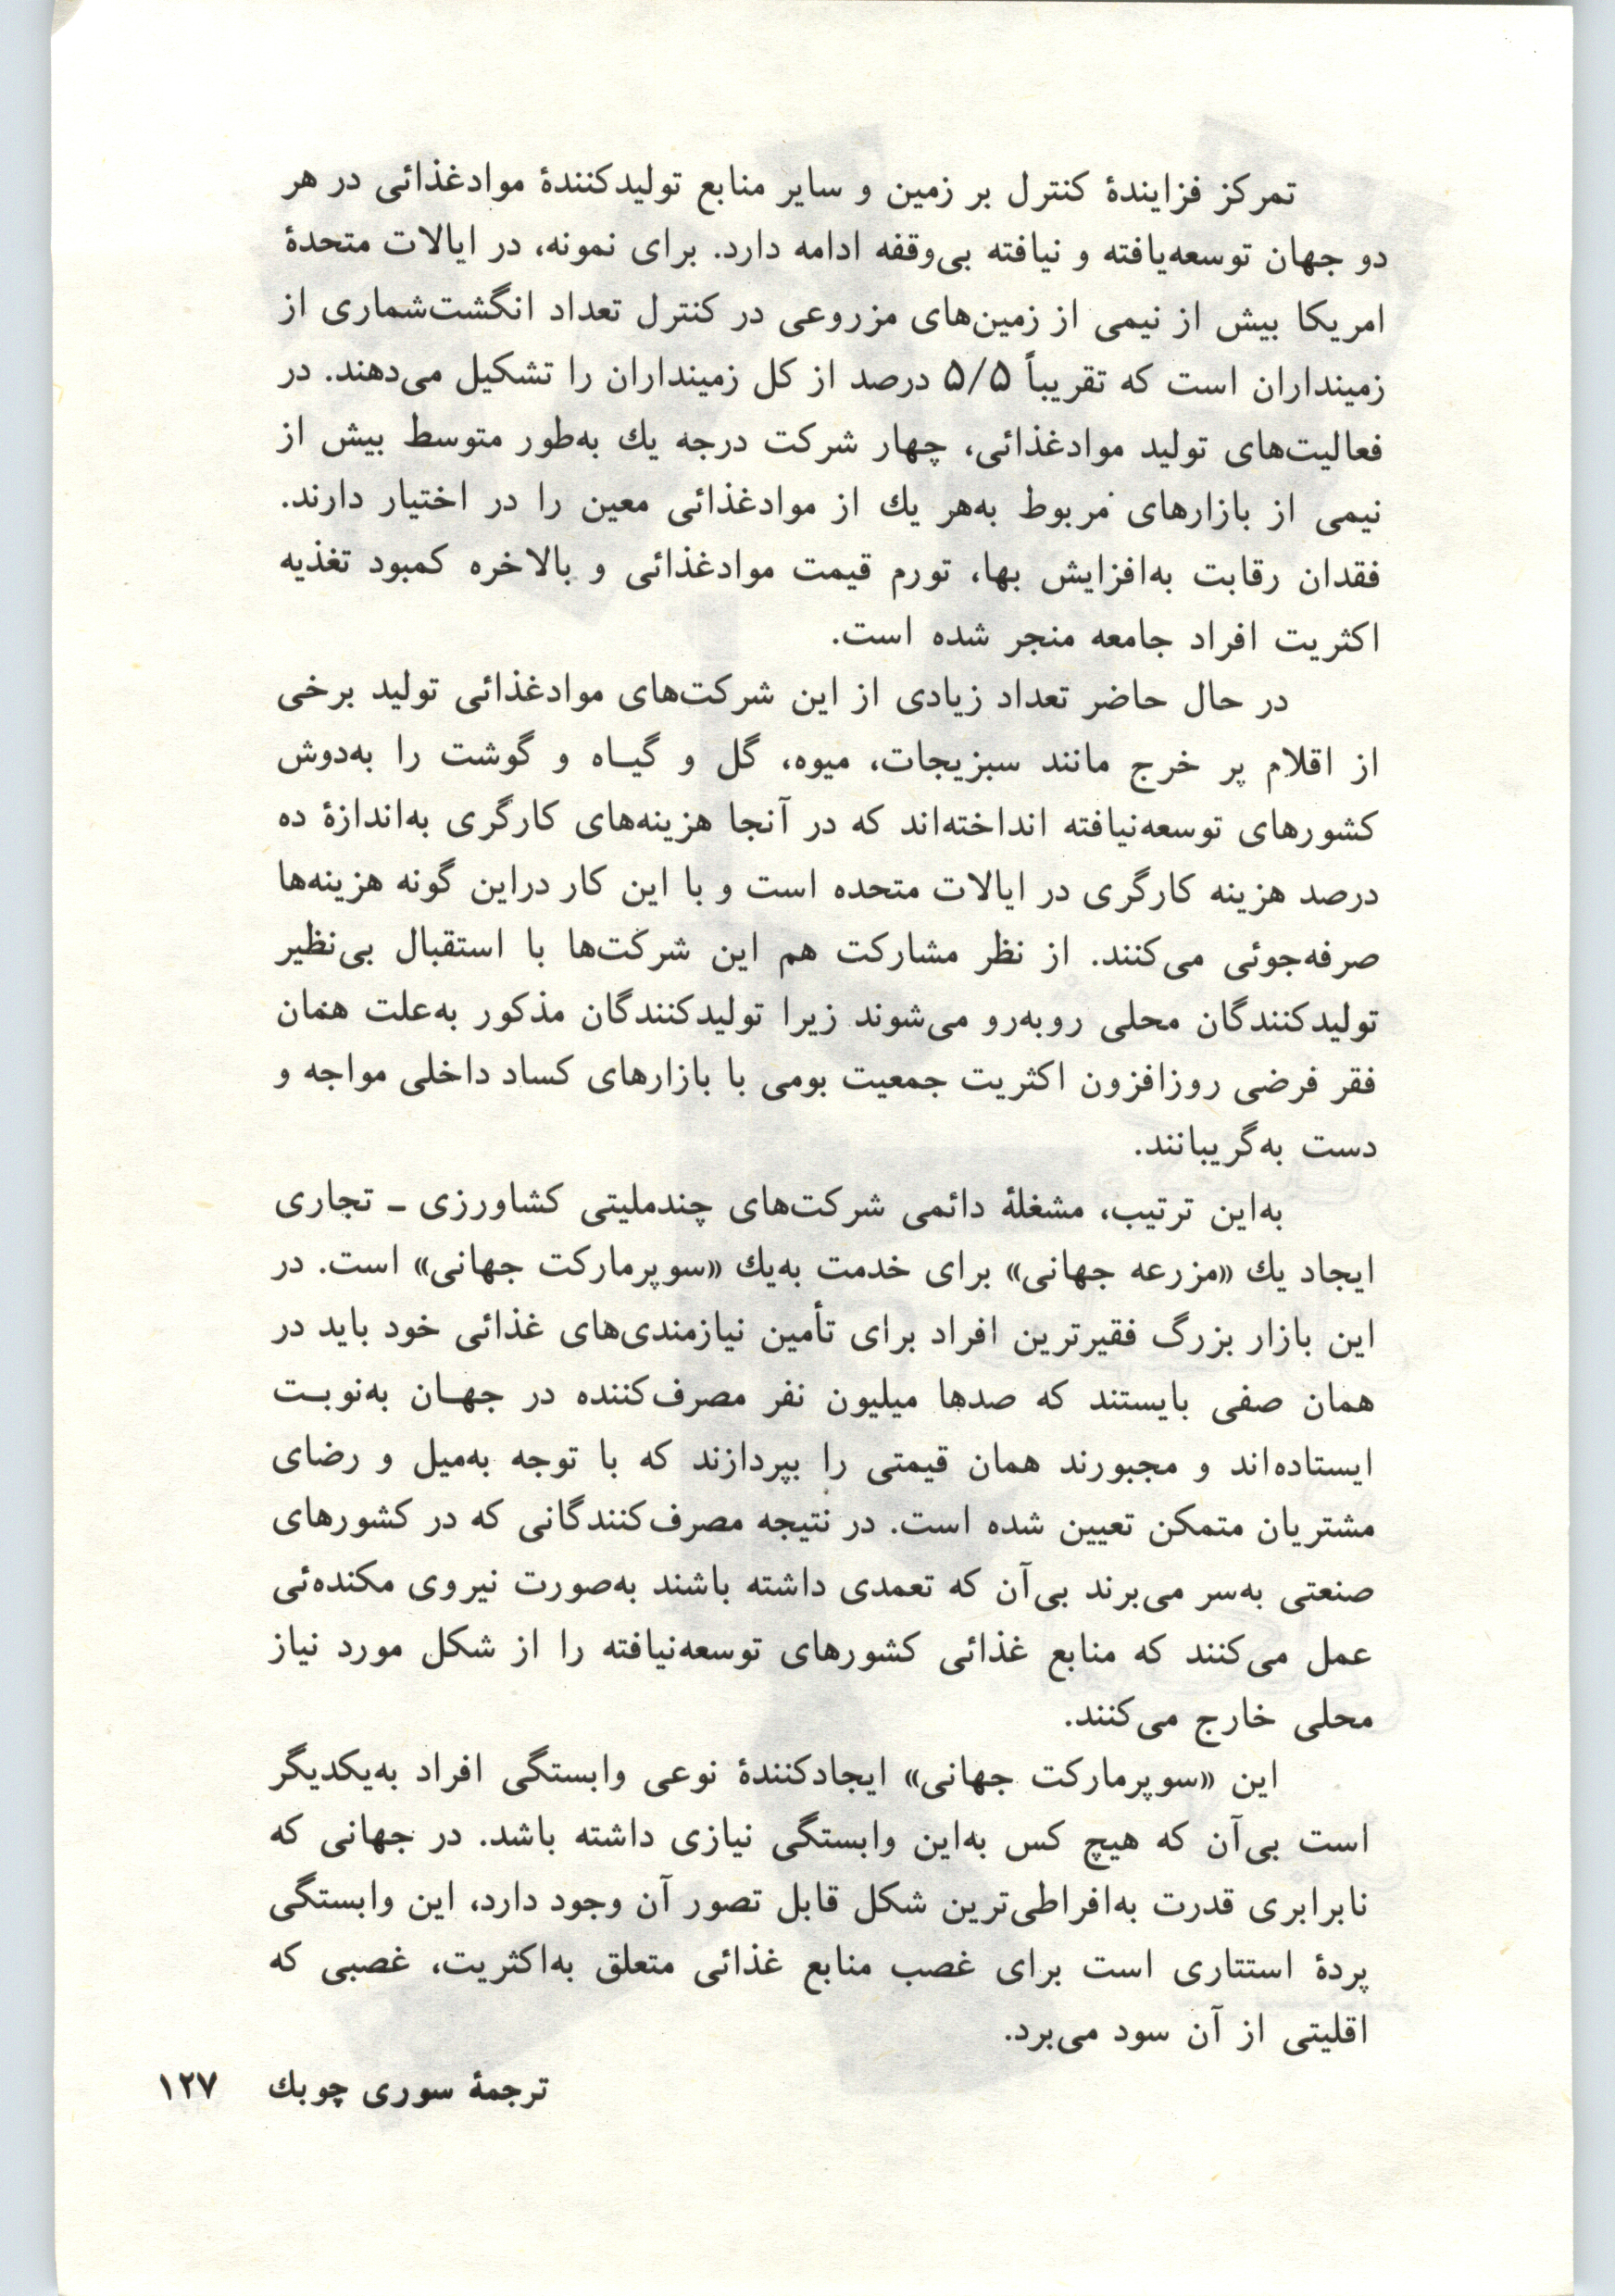 تمرکز فزایندهٔ کنترل بر زمین و سایر منابع تولیدکنندهٔ موادغذائی در هر
دو جهان توسعه‌یافته و نیافته بی‌وقفه ادامه دارد. برای نمونه، در ایالات متحدهٔ
امریکا بیش از نیمی از زمین‌های مزروعی در کنترل تعداد انگشت‌شماری از
زمینداران است که تقریباً ۵/۵ درصد از کل زمینداران را تشکیل می‌دهند. در
فعالیت‌های تولید موادغذائی، چهار شرکت درجه یك به‌طور متوسط بیش از
نیمی از بازارهای مربوط به‌هر یك از موادغذائی معین را در اختیار دارند.
فقدان رقابت به‌افزایش بها، تورم قیمت موادغذائی و بالاخره کمبود تغذیه
اکثریت افراد جامعه منجر شده است.
در حال حاضر تعداد زیادی از این شرکت‌های موادغذائی تولید برخی
از اقلام پر خرج مانند سبزیجات، میوه، گل و گیـاه و گوشت را به‌دوش
کشورهای توسعه‌نیافته انداخته‌اند که در آنجا هزینه‌های کارگری به‌اندازهٔ ده
درصد هزینه کارگری در ایالات متحده است و با این کار دراین گونه هزینه‌ها
صرفه‌جوئی می‌کنند. از نظر مشارکت هم این شرکت‌ها با استقبال بی‌نظیر
تولیدکنندگان محلی روبه‌رو می‌شوند زیرا تولیدکنندگان مذکور به‌علت همان
فقر فرضی روزافزون اکثریت جمعیت بومی با بازارهای کساد داخلی مواجه و
دست به‌گریبانند.
به‌این ترتیب، مشغلهٔ دائمی شرکت‌های چندملیتی کشاورزی ـ تجاری
ایجاد یك «مزرعه جهانی» برای خدمت به‌یك «سوپرمارکت جهانی» است. در
این بازار بزرگ فقیرترین افراد برای تأمین نیازمندی‌های غذائی خود باید در
همان صفی بایستند که صدها میلیون نفر مصرف‌کننده در جهـان به‌نوبـت
ایستاده‌اند و مجبورند همان قیمتی را بپردازند که با توجه به‌میل و رضای
مشتریان متمکن تعیین شده است. در نتیجه مصرف‌کنندگانی که در کشورهای
صنعتی به‌سر می‌برند بی‌آن که تعمدی داشته باشند به‌صورت نیروی مکنده‌ئی
عمل می‌کنند که منابع غذائی کشورهای توسعه‌نیافته را از شکل مورد نیاز
محلی خارج می‌کنند.
این «سوپرمارکت جهانی» ایجادکنندهٔ نوعی وابستگی افراد به‌یکدیگر
است بی‌آن که هیچ کس به‌این وابستگی نیازی داشته باشد. در جهانی که
نابرابری قدرت به‌افراطی‌ترین شکل قابل تصور آن وجود دارد، این وابستگی
پردهٔ استتاری است برای غصب منابع غذائی متعلق به‌اکثریت، غصبی که
اقلیتی از آن سود می‌برد.
ترجمهٔ سوری چوبك ۱۲۷